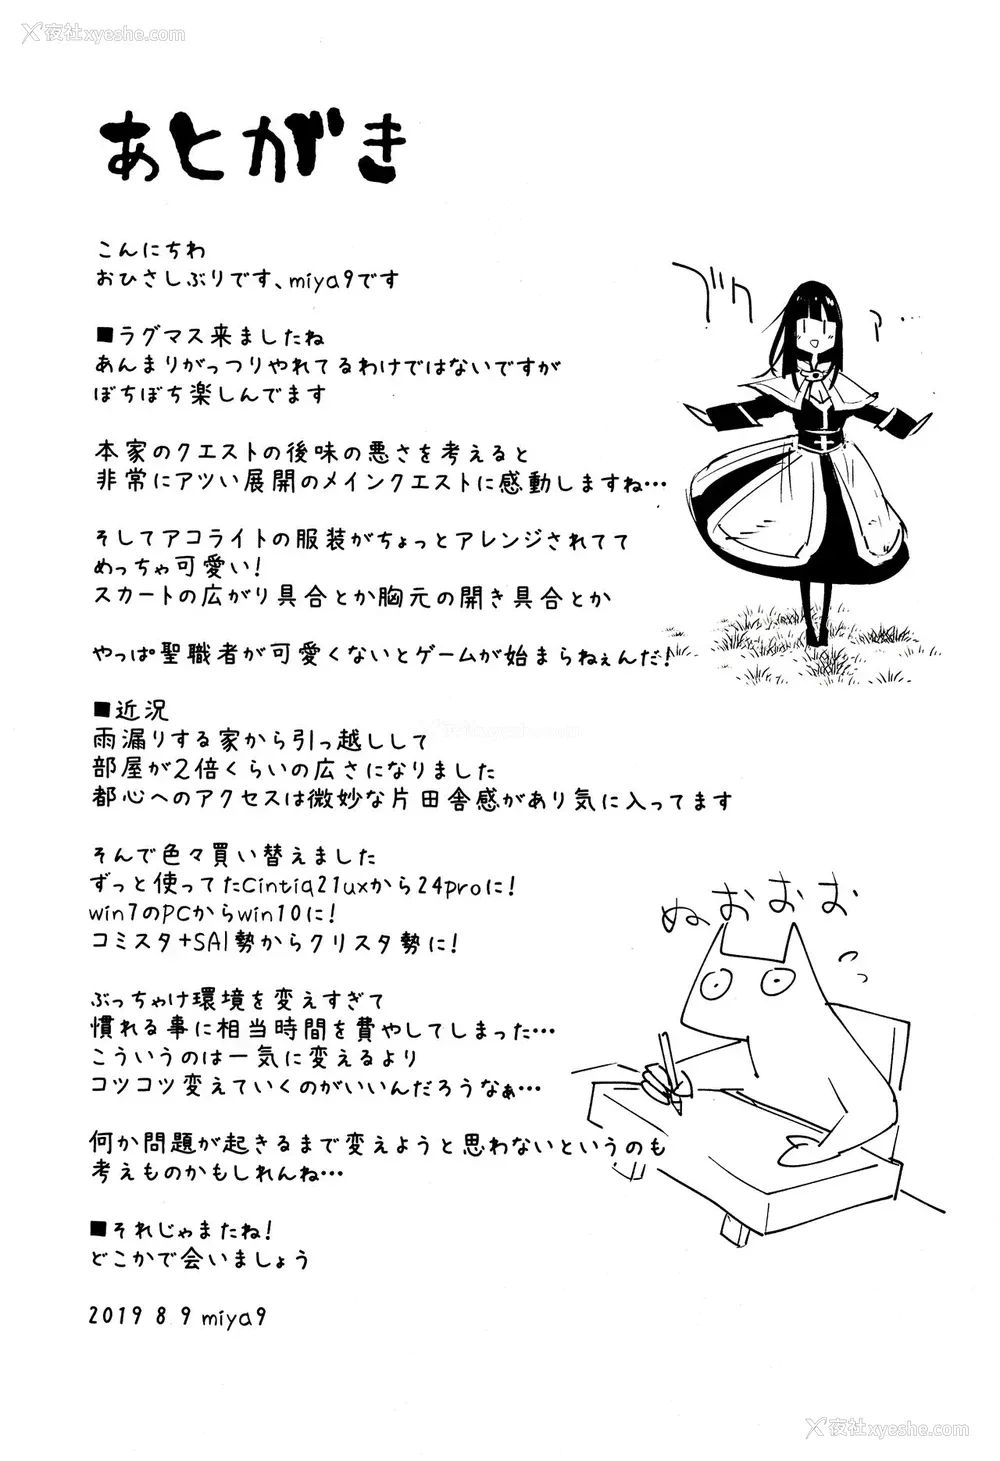 夜社xyeshe.com
あとがき
こんにちわ
おひさしぶりです、miya9です
■ラグマス来ましたね
あんまりがっつりやれてるわけではないですが
ぼちぼち楽しんでます
本家のクエストの後味の悪さを考えると
非常にアツい展開のメインクエストに感動しますね…
そしてアコライトの服装がちょっとアレンジされてて
めっちゃ可愛い!
スカートの広がり具合とか胸元の開き具合とか
やっぱ聖職者が可愛くないとゲームが始まらねぇんだ!
■近況
雨漏りする家から引っ越しして
部屋が2倍くらいの広さになりました
都心へのアクセスは微妙な片田舎感があり気に入ってます
そんで色々買い替えました
ずっと使ってたCintiq21uxから24proに!
win7のPCからwin10に!
コミスタ+SAI勢からクリスタ勢に!
ぶっちゃけ環境を変えすぎて
慣れる事に相当時間を費やしてしまった…
こういうのは一気に変えるより
コツコツ変えていくのがいいんだろうなぁ…
何か問題が起きるまで変えようと思わないというのも
考えものかもしれんね…
■それじゃまたね!
どこかで会いましょう
2019 8 9 miya9
ブワ
ア…
ぬおおお
夜社xyeshe.com